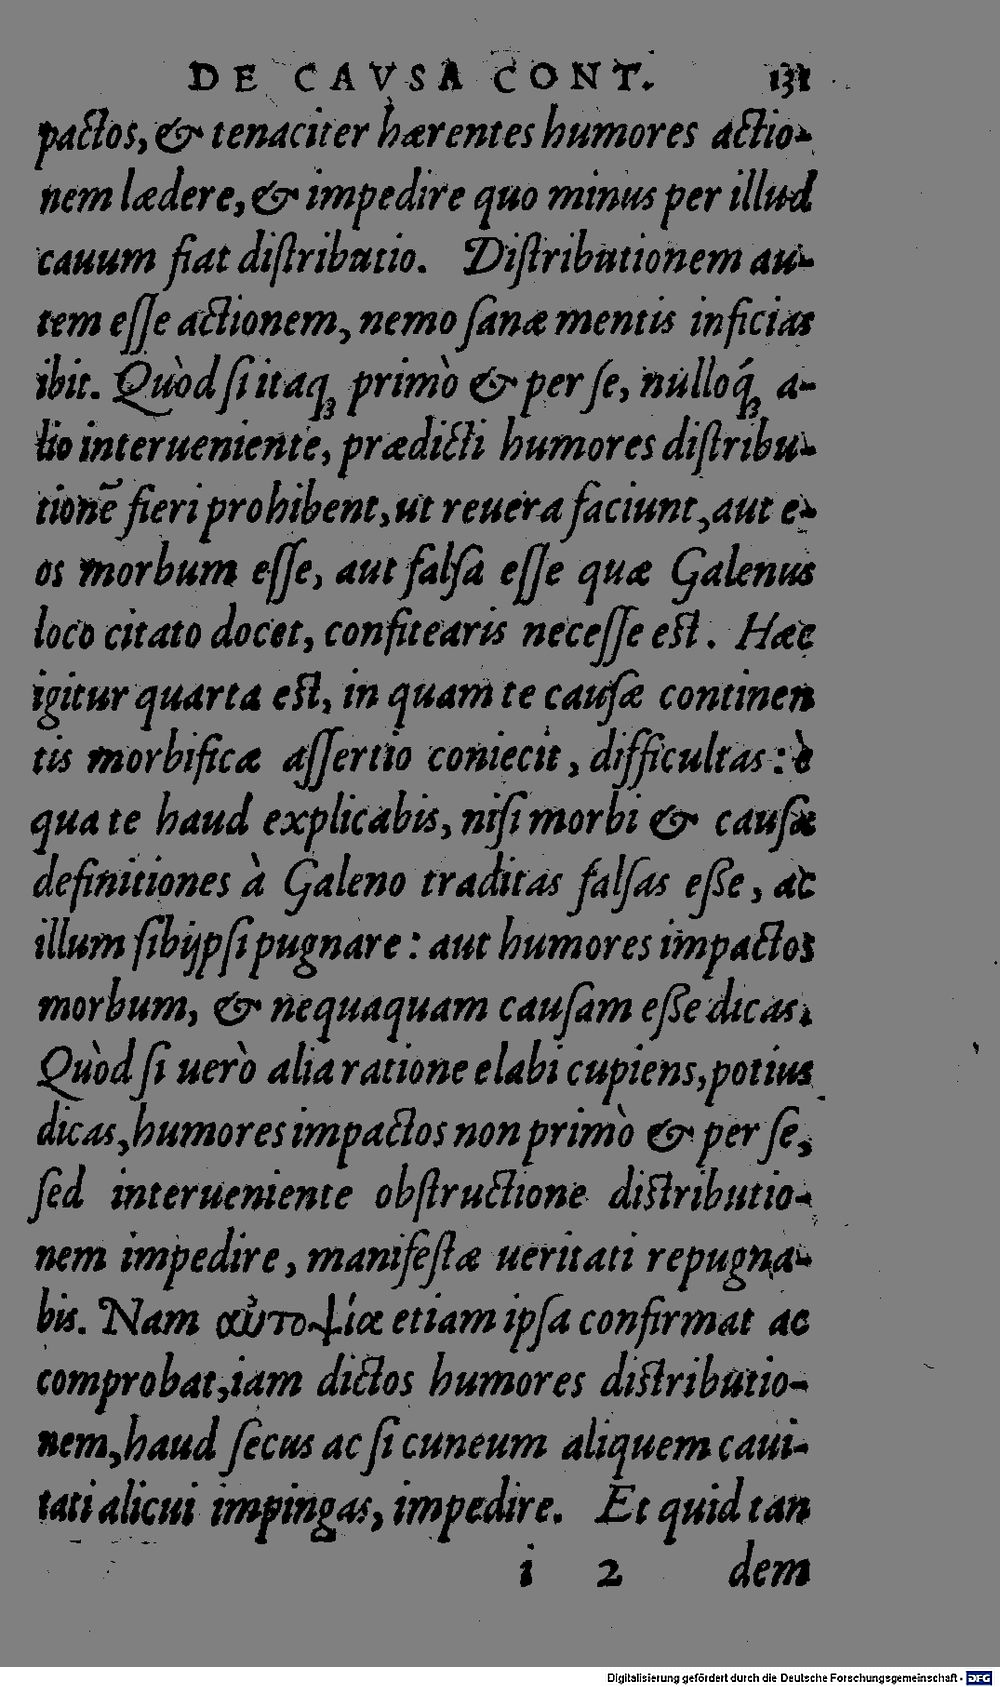 DE CAVSA CONT. 131
pactos, & tenaciter hærentes humores actio-
nem lædere, & impedire quo minus per illud
cauum fiat diſtributio. Diſtributionem au-
tem eſſe actionem, nemo ſanæ mentis inficias
ibit. Quòd ſi itaqꝫ primò & per ſe, nulloq́ꝫ a-
lio interueniente, prædicti humores diſtribu-
tionē fieri prohibent, ut reuera faciunt, aut e-
os morbum eſſe, aut falſa eſſe quæ Galenus
loco citato docet, confitearis neceſſe est. Hæc
igitur quarta est, in quam te cauſæ continen
tis morbificæ aſſertio coniecit, difficultas: è
qua te haud explicabis, niſi morbi & cauſæ
definitiones à Galeno traditas falſas eße, ac
illum ſibijpſi pugnare: aut humores impactos
morbum, & nequaquam cauſam eße dicas.
Quòd ſi uerò alia ratione elabi cupiens, potius
dicas, humores impactos non primò & per ſe,
ſed interueniente obſtructione distributio-
nem impedire, manifeſtæ ueritati repugna-
bis. Nam αὐτοψία etiam ipſa confirmat ac
comprobat, iam dictos humores distributio-
nem, haud ſecus ac ſi cuneum aliquem caui-
tati alicui impingas, impedire. Et quid tan
i 2 dem
Digitalisierung gefördert durch die Deutsche Forschungsgemeinschaft - DFG